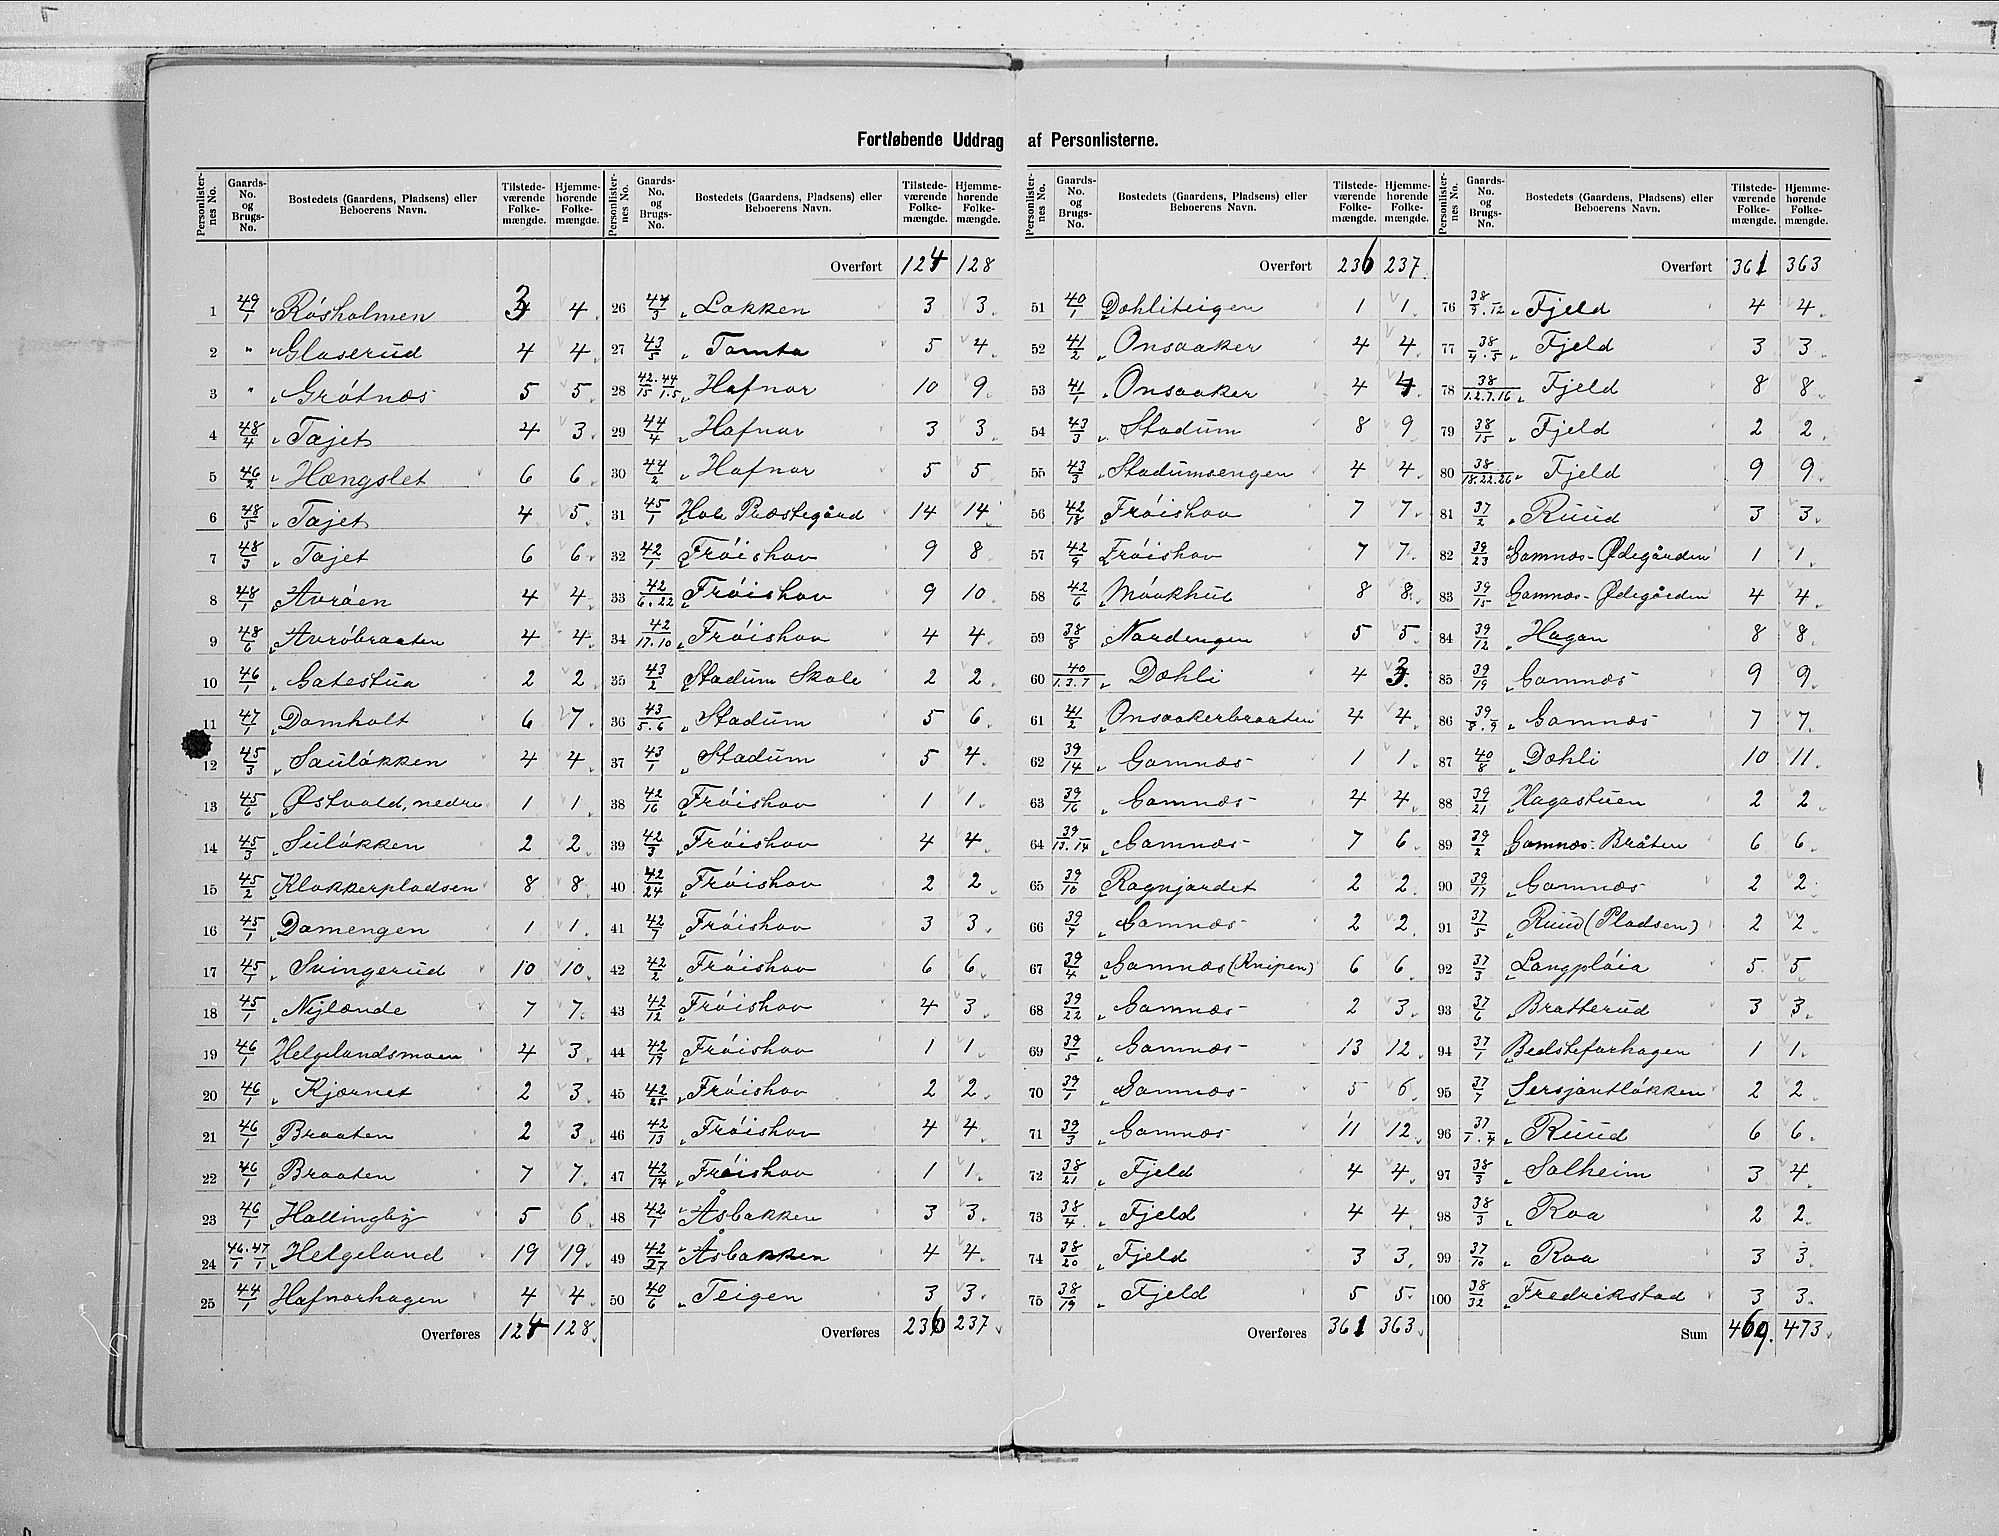 Fortløbende Uddrag af Personlisterne.
Personlister-nes No. Gaards-No. og Brugs-No. Bostedets (Gaardens, Pladsens) eller Beboerens Navn. Tilstede-værende Folke-mængde. Hjemme-hørende Folke-mængde.
1 49/1 Røsholmen 3 4
2 " Glaserud 4 4
3 " Grøtnæs 5 5
4 48/4 Tajet 4 3
5 46/2 Hængslet 6 6
6 48/5 Tajet 4 5
7 48/3 Tajet 6 6
8 48/1 Avrøen 4 4
9 48/6 Avrøbraaten 4 4
10 46/1 Gatestua 2 2
11 47/1 Domholt 6 7
12 45/3 Sauløkken 4 4
13 45/6 Østvold, nedre 1 1
14 45/3 Suløkken 2 2
15 45/2 Klokkerpladsen 8 8
16 45/1 Damengen 1 1
17 45/1 Svingerud 10 10
18 45/1 Nylænde 7 7
19 46/1 Helgelandsmoen 4 3
20 46/1 Kjærnet 2 3
21 46/1 Braaten 2 3
22 46/1 Braaten 7 7
23 46/1 Hallingby 5 6
24 46/1 . 47/1 Helgeland 19 19
25 44/1 Hafnorhagen 4 4
Overføres 124 128
Personlister-nes No. Gaards-No. og Brugs-No. Bostedets (Gaardens, Pladsens) eller Beboerens Navn. Tilstede-værende Folke-mængde. Hjemme-hørende Folke-mængde.
Overført 124 128
26 44/3 Løkken 3 3
27 43/5 Tomta 5 4
28 42/15 . 44/1.5 Hafnor 10 9
29 44/4 Hafnor 3 3
30 44/2 Hafnor 5 5
31 45/1 Hole Præstegård 14 14
32 42/1 Frøishov 9 8
33 42/6.22 Frøishov 9 10
34 42/17.10 Frøishov 4 4
35 43/2 Stadum Skole 2 2
36 43/5.6 Stadum 5 6
37 43/1 Stadum 5 4
38 42/16 Frøishov 1 1
39 42/3 Frøishov 4 4
40 42/24 Frøishov 2 2
41 42/7 Frøishov 3 3
42 42/2 Frøishov 6 6
43 42/12 Frøishov 4 3
44 42/17 Frøishov 1 1
45 42/25 Frøishov 2 2
46 42/13 Frøishov 4 4
47 42/14 Frøishov 1 1
48 42/1 Åsbakken 3 3
49 42/27 Åsbakken 4 4
50 40/6 Teigen 3 3
Overføres 236 237
Personlister-nes No. Gaards-No. og Brugs-No. Bostedets (Gaardens, Pladsens) eller Beboerens Navn. Tilstede-værende Folke-mængde. Hjemme-hørende Folke-mængde.
Overført 236 237
51 40/1 Dæhliteigen 1 1
52 41/2 Onsaaker 4 4
53 41/1 Onsaaker 4 4
54 43/3 Stadum 8 9
55 43/3 Stadumsengen 4 4
56 42/18 Frøishov 7 7
57 42/9 Frøishov 7 7
58 42/6 Mowkhul 8 8
59 38/8 Nordengen 5 5
60 40/1.3.7 Dæhli 4 3
61 41/2 Onsaakerbraaten 4 4
62 39/14 Gomnæs 1 1
63 39/16 Gomnæs 4 4
64 39/13.14 Gomnæs 7 6
65 39/10 Rognjordet 2 2
66 39/7 Gomnæs 2 2
67 39/4 Gomnæs (Knipen) 6 6
68 39/22 Gomnæs 2 3
69 39/5 Gomnæs 13 12
70 39/1 Gomnæs 5 6
71 39/3 Gomnæs 11 12
72 38/21 Fjeld 4 4
73 38/4 Fjeld 4 4
74 38/20 Fjeld 3 3
75 38/19 Fjeld 5 5
Overføres 361 363
Personlister-nes No. Gaards-No. og Brugs-No. Bostedets (Gaardens, Pladsens) eller Beboerens Navn. Tilstede-værende Folke-mængde. Hjemme-hørende Folke-mængde.
Overført 361 363
76 38/9.12 Fjeld 4 4
77 38/4.5 Fjeld 3 3
78 38/1.2.7.16 Fjeld 8 8
79 38/15 Fjeld 2 2
80 38/18.22.26 Fjeld 9 9
81 37/2 Ruud 3 3
82 39/23 Gomnæs-Ødegården 1 1
83 39/15 Gomnæs-Ødegården 4 4
84 39/12 Hagan 8 8
85 39/19 Gomnæs 9 9
86 39/8.9 Gomnæs 7 7
87 40/8 Dæhli 10 11
88 39/21 Hagastuen 2 2
89 39/2 Gomnæs-Bråten 6 6
90 39/17 Gomnæs 2 2
91 37/5 Ruud (Pladsen) 2 2
92 37/3 Langpløia 5 5
93 37/6 Bratterud 3 3
94 37/1 Bedstefarhagen 1 1
95 37/7 Sersjantløkken 2 2
96 37/1.4 Ruud 6 6
97 38/3 Solheim 3 4
98 38/3 Roa 2 2
99 37/10 Roa 3 3
100 38/32 Fredrikstad 3 3
Sum 469. 473